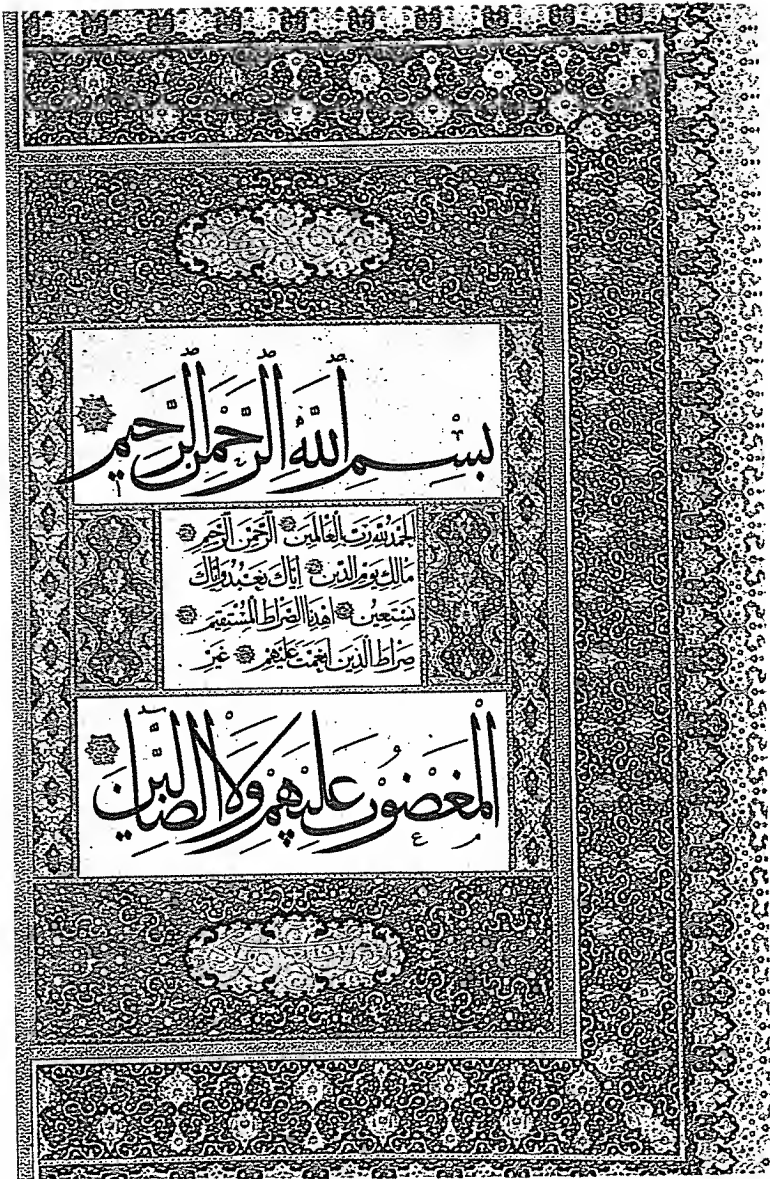 بِسْمِ اللَّهِ الرَّحْمَنِ الرَّحِيمِ
الْحَمْدُ لِلَّهِ رَبِّ الْعَالَمِينَ الرَّحْمَنِ الرَّحِيمِ
مَالِكِ يَوْمِ الدِّينِ إِيَّاكَ نَعْبُدُ وَإِيَّاكَ
نَسْتَعِينُ اهْدِنَا الصِّرَاطَ الْمُسْتَقِيمَ
صِرَاطَ الَّذِينَ أَنْعَمْتَ عَلَيْهِمْ غَيْرِ
الْمَغْضُوبِ عَلَيْهِمْ وَلَا الضَّالِّينَ